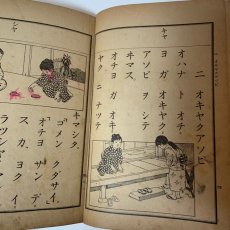 二 オキヤクアソビ
オハナ ト オチ
ヨ ガ オキヤク
アソビ ヲ シテ
ヰマス。
オチヨ ガ オキ
ヤク ニ ナツテ
キマシタ。
「ゴメン クダサイ。」
「オチヨ サン デ
スカ。ヨク イ